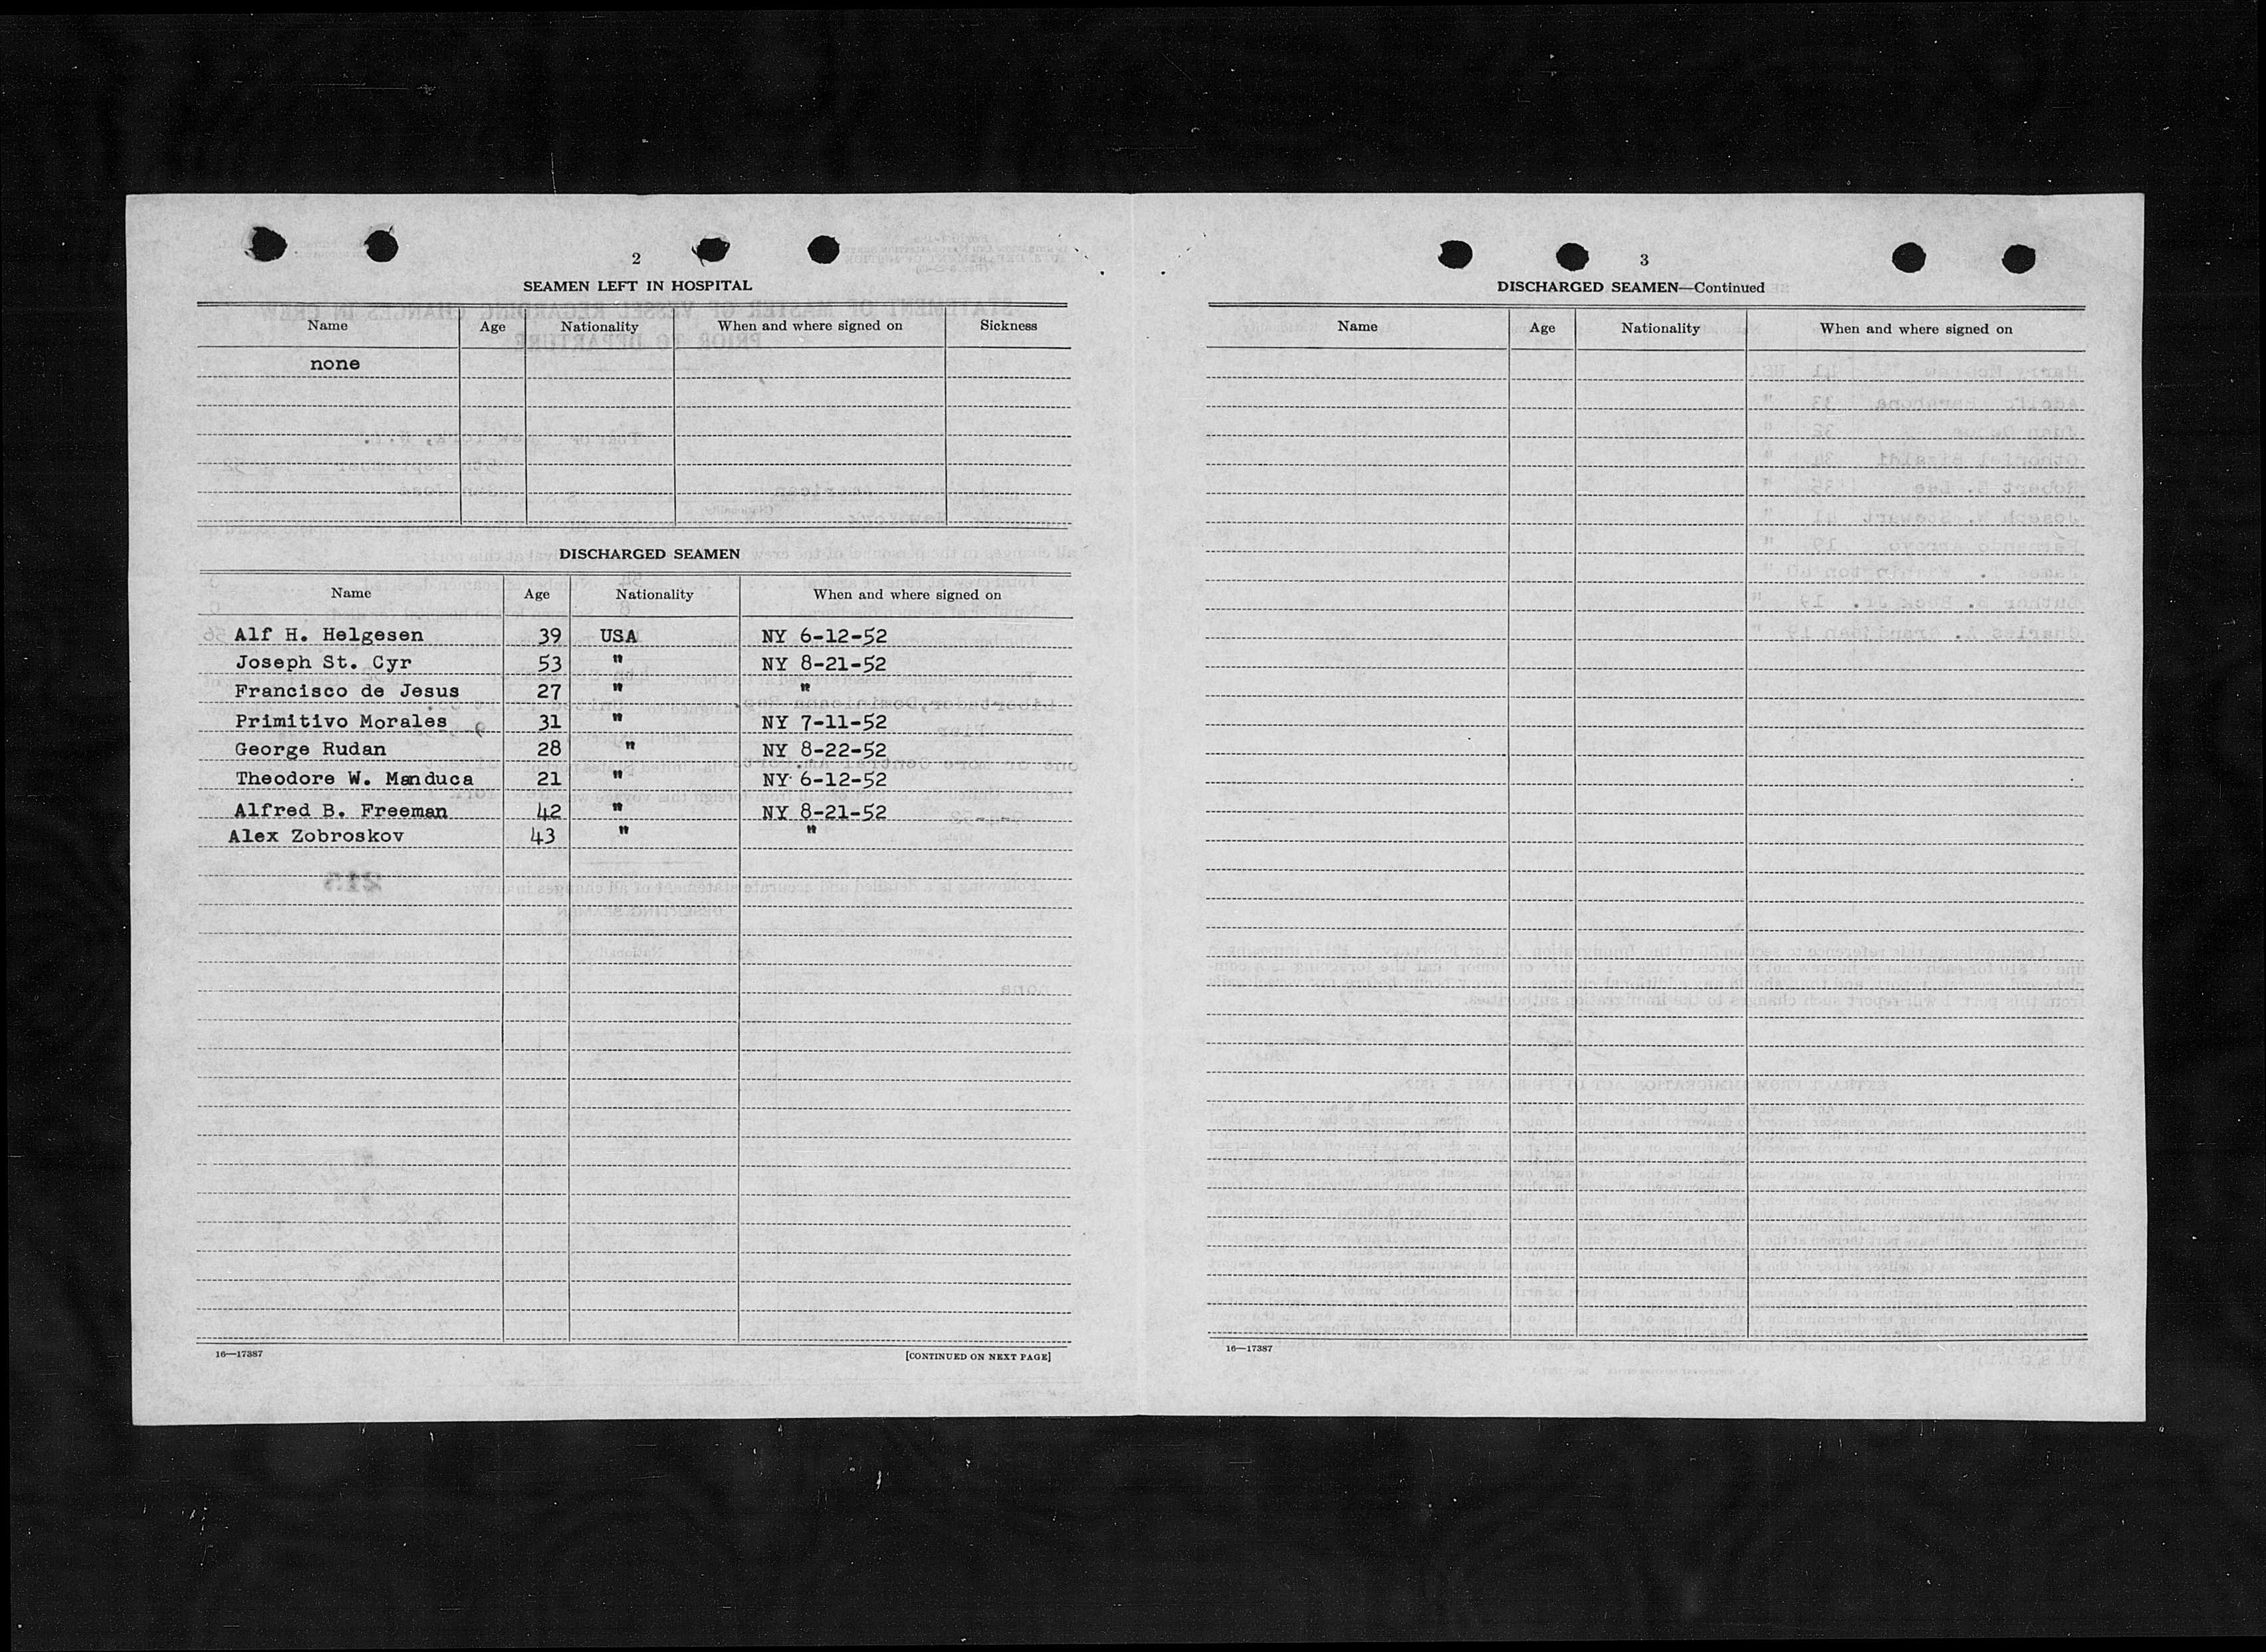 2
SEAMEN LEFT IN HOSPITAL
Name Age Nationality When and where signed on Sickness
none
DISCHARGED SEAMEN
Name Age Nationality When and where signed on
Alf H. Helgesen 39 USA NY 6-12-52
Joseph St. Cyr 53 " NY 8-21-52
Francisco de Jesus 27 " "
Primitivo Morales 31 " NY 7-11-52
George Rudan 28 " NY 8-22-52
Theodore W. Manduca 21 " NY 6-12-52
Alfred B. Freeman 42 " NY 8-21-52
Alex Zobroskov 43 " "
16—17387 [CONTINUED ON NEXT PAGE]
3
DISCHARGED SEAMEN—Continued
Name Age Nationality When and where signed on
16—17387